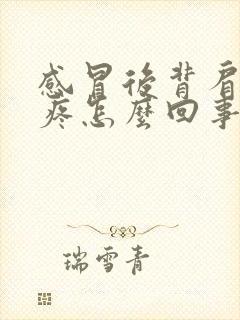 感冒後背肩
疼怎麼回事
瑞雪青